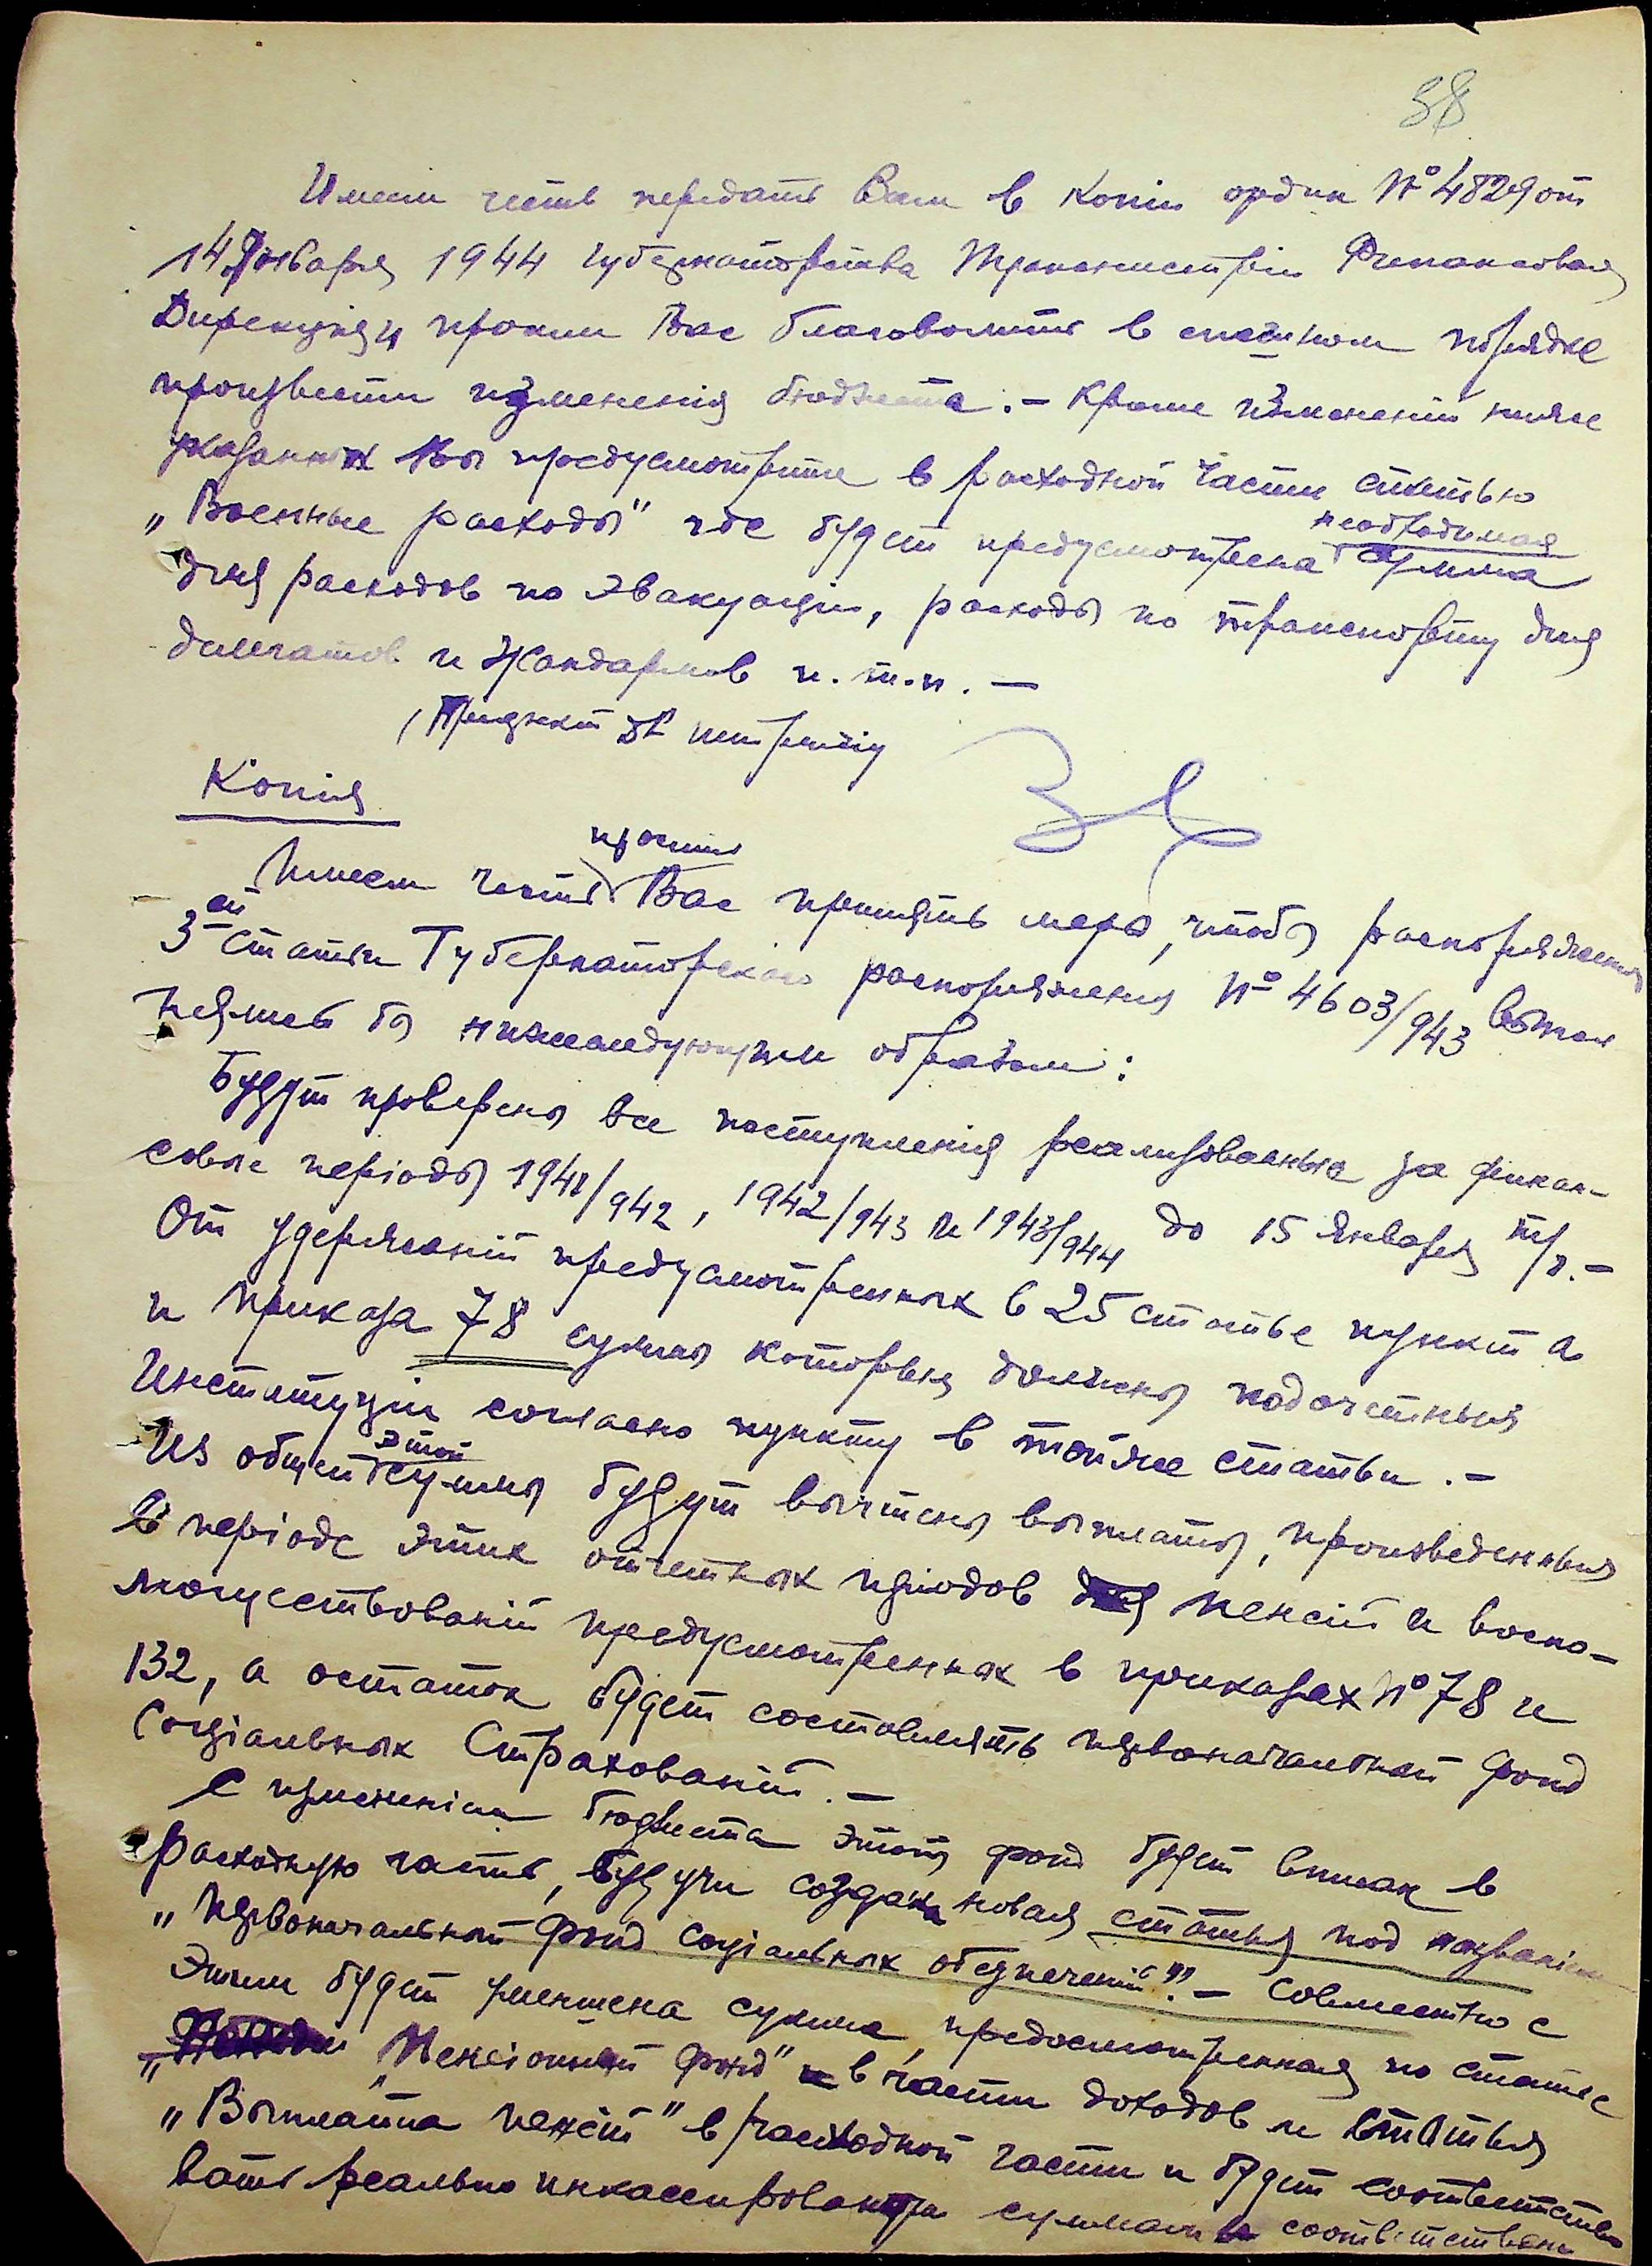 38
Имеем честь передать Вам в копіи ордин № 4829 от
14 Января 1944 Губернаторства Транснистріи Финансовая
Дирекція и просим Вас благоволить в спешном порядке
произвести измененія бюджета. – Кроме измененій ниже
указанных Вы предусмотрите в расходной части статью
„Военные расходы" где будет предусмотрена необходимая сумма
для расходов по эвакуаціи, расходы по транспорту для
делегатов и жандармов и. т. п. –
Копія
Имеем честь просить Вас принять меры, чтобы распоряжения
3–ей статьи Губернаторскаго распоряжения № 4603/943 выпол
нялись бы нижеследующим образом:
Будут проверены все поступленія реализованные за финан–
совые періоды 1941/942, 1942/943 и 1943/944 до 15 Января т/г. –
От удержаній предусмотренных в 25 статье пункт а
и Приказа 78 суммы которыя должны подотчетныя
Институціи согласно пункту в той же статьи. –
Из общей этой суммы будут вычтены выплаты, произведенныя
в періоде этих отчетных періодов пенсій и воспо–
моществованій предусмотренных в приказах № 78 и
132, а остаток будет составлять первоначальный фонд
Соціальных Страхованій. –
С измененіем бюджета этот фонд будет вписан в
расходную часть, будучи создана новая статья под названіем
„Первоначальный фонд соціальных обезпеченій". – Совместно с
Этим будет уменшена сумма, предосмотренная по статье
„Пенсіонный фонд" в части доходов и статья
„Выплата пенсій" в расходной части и будет соответство
вать реально инкассированным суммам соответственно